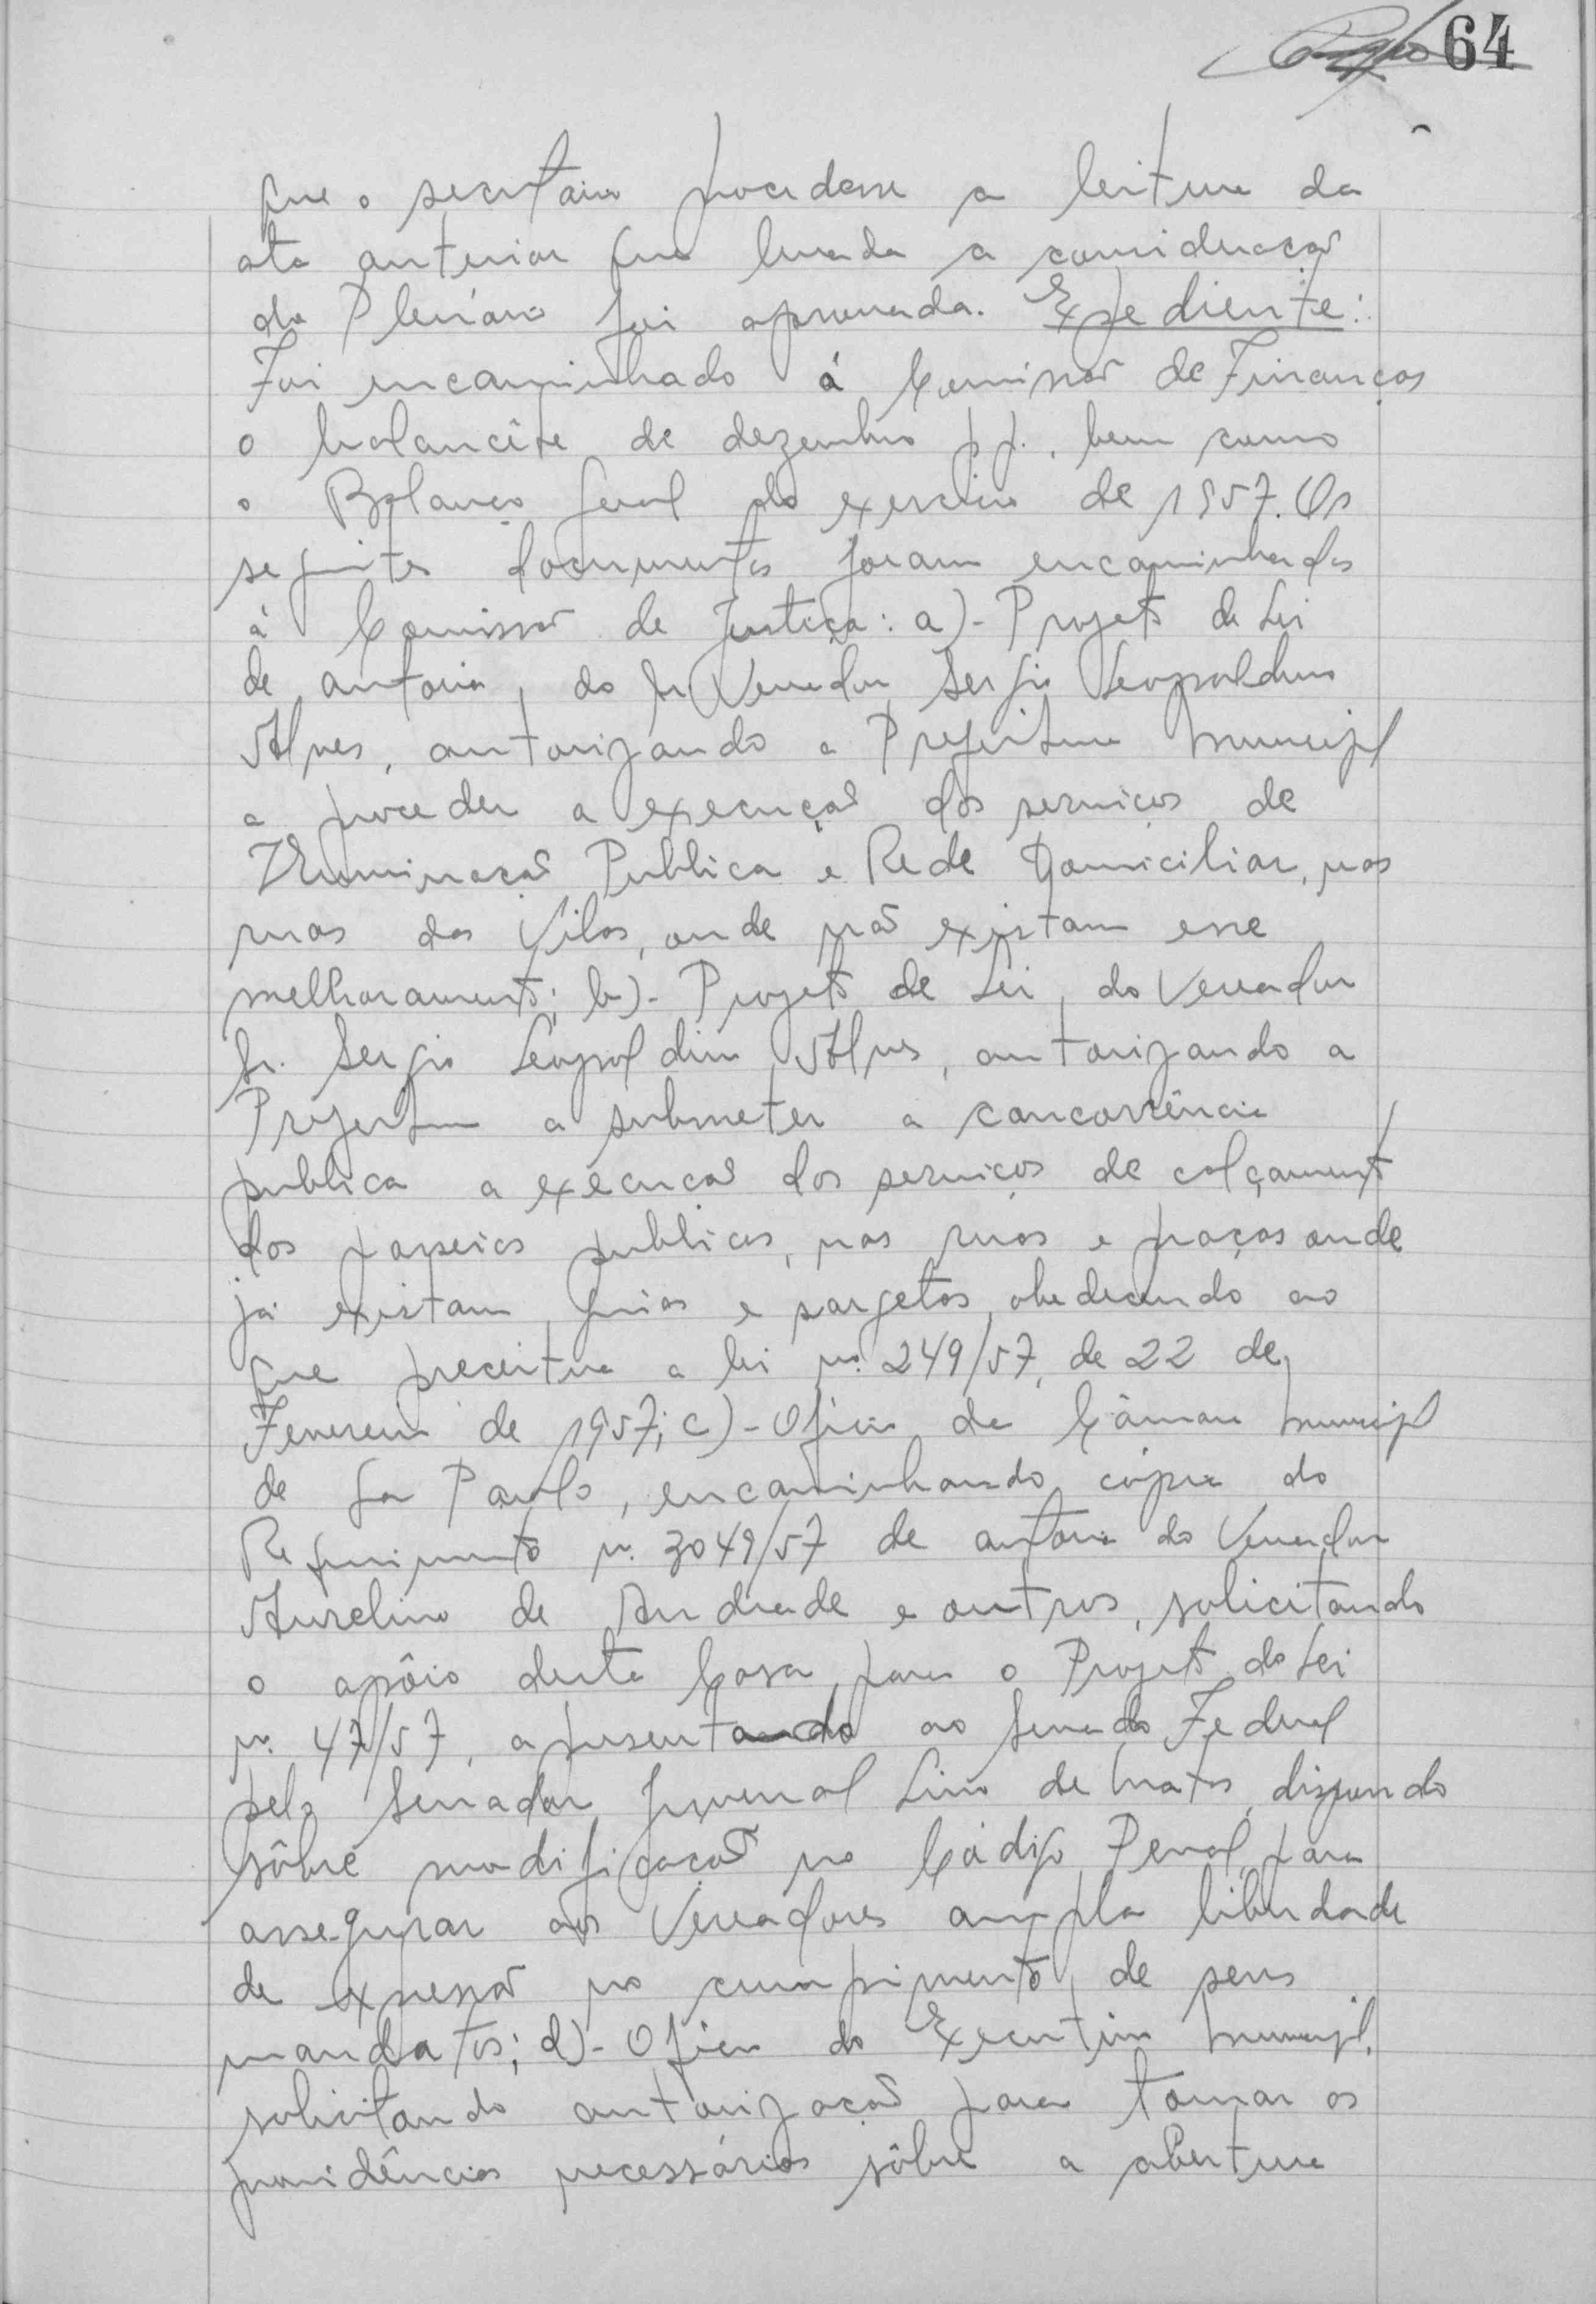 64
que o secretario procedesse a leitura da
ata anterior que levada a consideração
do Plenário foi aprovada. Expediente:
Foi encaminhado á Comissão de Finanças
o balancête de dezembro p.p., bem como
o Balanço Geral do exercicio de 1957. Os
seguintes documentos foram encaminhados
á Comissão de Justiça: a)- Projeto de Lei
de autoria, do Sr Vereador Sergio Leopoldino
Alves, autorizando a Prefeitura Municipal
a proceder a execução dos serviços de
Iluminação Publica e Rede Domiciliar, nas
ruas das Vilas, onde não existam esse
melhoramento; b)- Projeto de Lei, do Vereador
Sr. Sergio Leopoldino Alves, autorizando a
Prefeitura a submeter a concorrência
publica a execução dos serviços de calçamento
dos passeios publicos, nas ruas e praças onde
já existam guias e sargetas, obedecendo ao
que preceitua a lei nº 249/57, de 22 de
Fevereiro de 1957; c)- Oficio da Câmara Municipal
de São Paulo, encaminhando cópia do
Requerimento n. 3049/57 de autoria do Vereador
Aurelino de Andrade e outros, solicitando
o apôio desta Casa para o Projeto de Lei
n. 47/57, apresentando ao Senado Federal
pelo Senador Juvenal Lino de Matos, dispondo
sôbre modificação no Código Penal, para
assegurar aos Vereadores ampla liberdade
de expressão no cumprimento de seus
mandatos; d)- Oficio do Executivo Municipal,
solicitando autorização para tomar as
providências necessárias sôbre a abertura